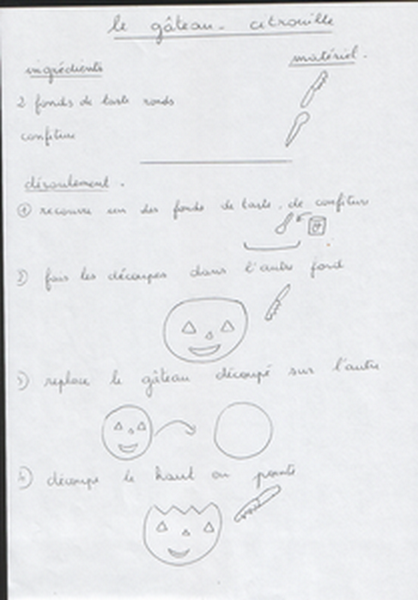 le gâteau - citrouille
ingrédients
matériel.
2 fonds de tarte ronds
confiture
déroulement.
1) recouvre un des fonds de tarte de confiture
2) fais les découpes dans l'autre fond
3) replace le gâteau découpé sur l'autre
4) découpe le haut en pointe